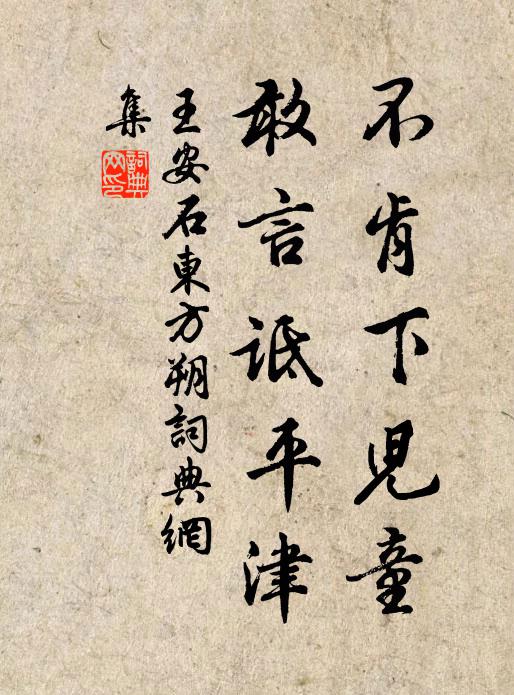 不肯下兒童
敢言詆平津
王安石東方朔詞典網
集
詞典
网印